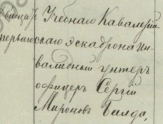 Учебнаго Кавалерій
скаго эскадрона ин
валидный унтеръ
офицеръ Сергій
Мироновъ